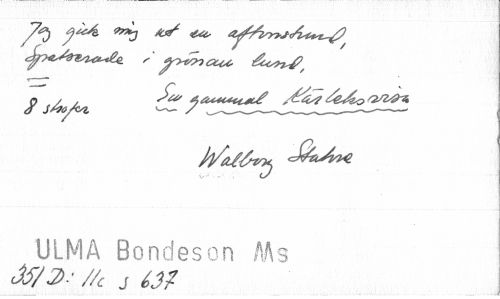 Jag gick mig ut en aftonstund,
Spatserade i grönan lund,
=
8 strofer En gammal Kärleksvisa
Walborg
ULMA Bondeson Ms
351 D: 11c s 637